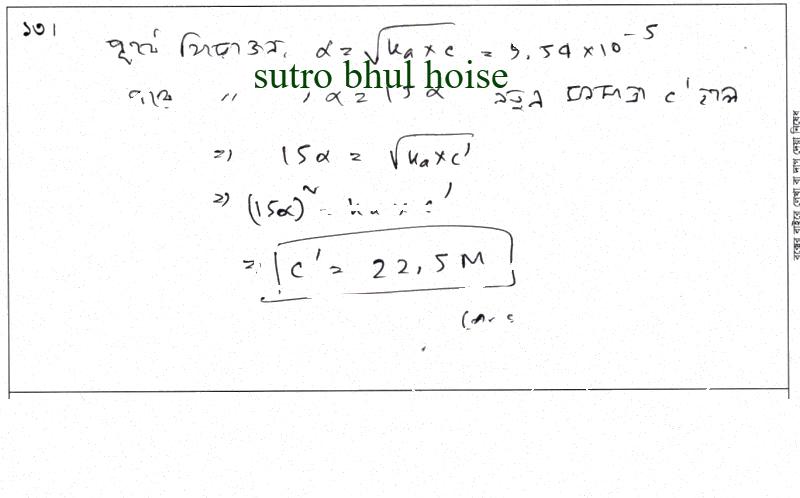 ১৩।
পূর্বে বিয়োজন, α = √Ka×c = 9.54×10⁻⁵
sutro bhul hoise
পরে " , α = 15α নতুন ঘনমাত্রা c' হলে
⇒) 15α = √Ka×c'
⇒) (15α)²
⇒ c' = 22.5 M
বক্সের বাইরে লেখা বা দাগ দেয়া নিষেধ